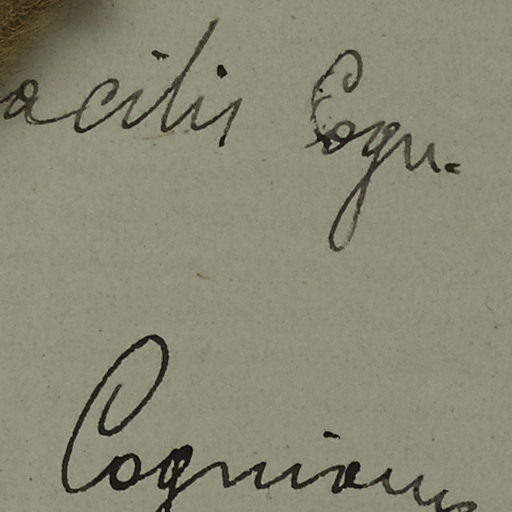 acilis Cogn.
Cogniaux